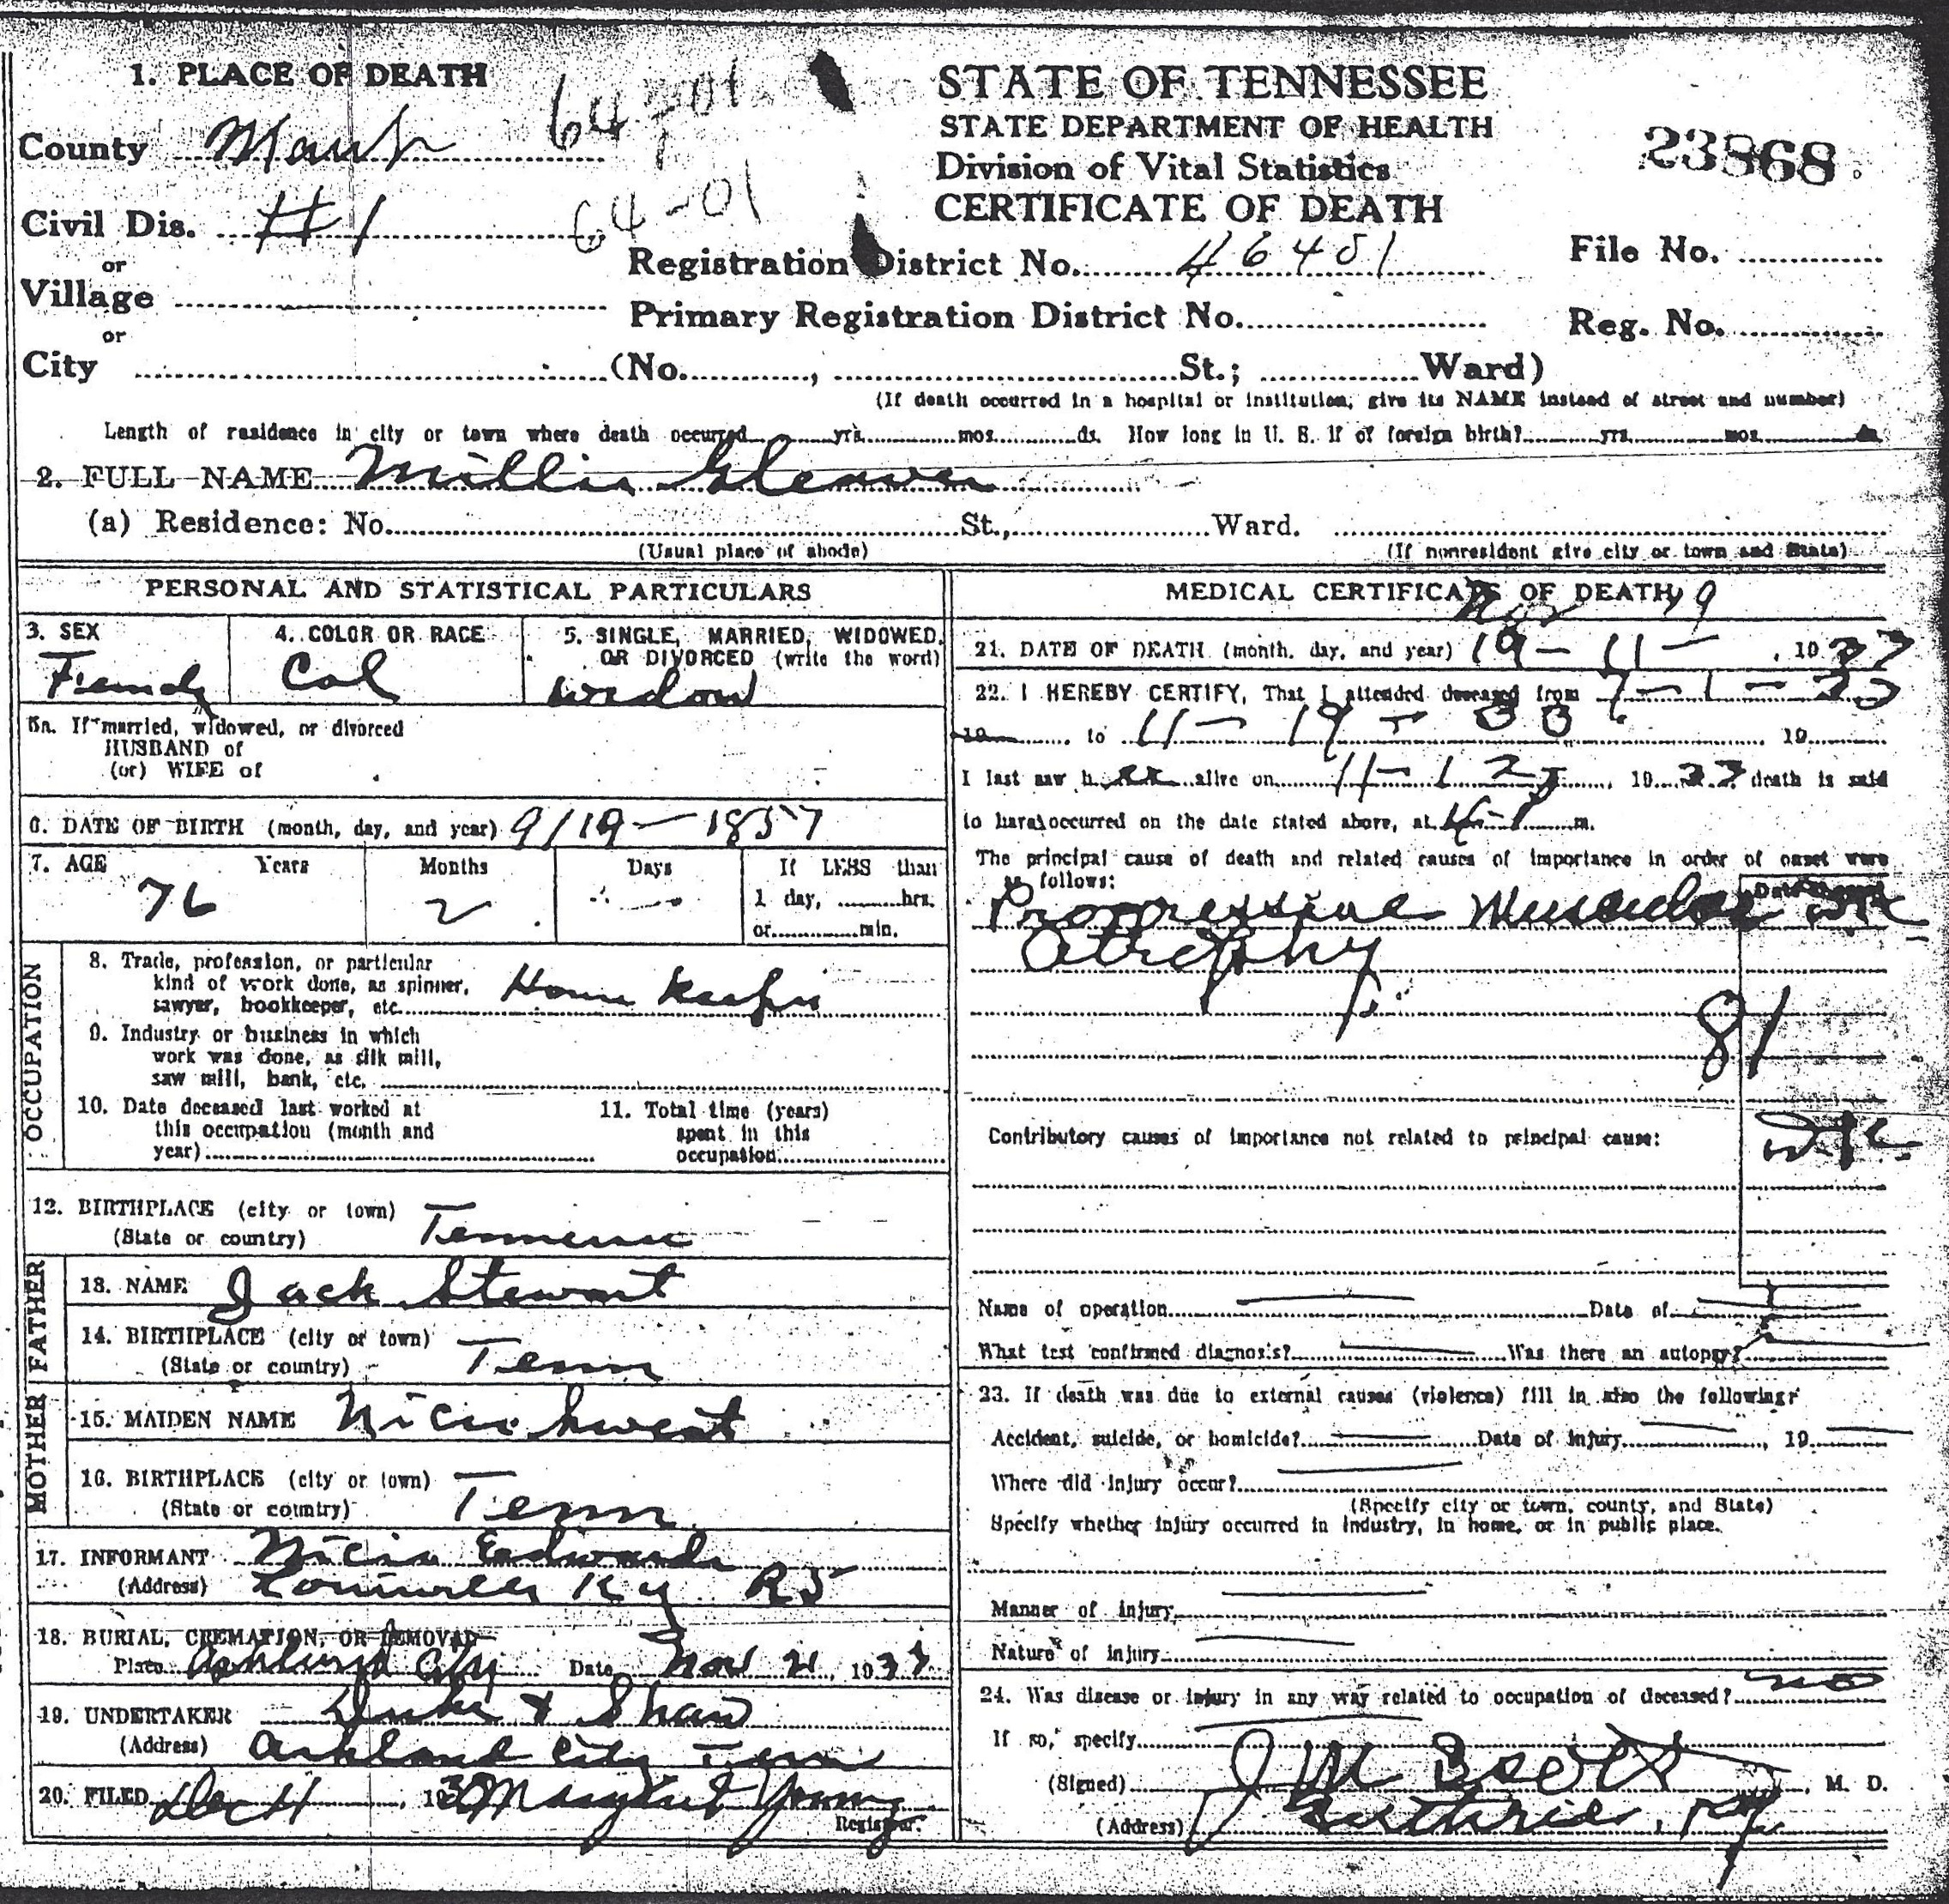 1. PLACE OF DEATH
STATE OF TENNESSEE
STATE DEPARTMENT OF HEALTH
Division of Vital Statistics
CERTIFICATE OF DEATH
23868
County 64-01
Civil Dis. #1 64-01
or
Registration District No. 46401 File No.
Village
Primary Registration District No. Reg. No.
or
City (No. , St.; Ward)
(If death occurred in a hospital or institution, give its NAME instead of street and number)
Length of residence in city or town where death occurred yrs. mos. ds. How long in U. S. if of foreign birth? yrs. mos. ds.
2. FULL NAME Millie
(a) Residence: No. St., Ward.
(Usual place of abode) (If nonresident give city or town and State)
PERSONAL AND STATISTICAL PARTICULARS
3. SEX
4. COLOR OR RACE
5. SINGLE, MARRIED, WIDOWED, OR DIVORCED (write the word)
Female Col widow
5a. If married, widowed, or divorced
HUSBAND of
(or) WIFE of
6. DATE OF BIRTH (month, day, and year) 9/19-1857
7. AGE Years Months Days If LESS than
76 2 - 1 day, hrs.
or min.
OCCUPATION
8. Trade, profession, or particular
kind of work done, as spinner,
sawyer, bookkeeper, etc.
9. Industry or business in which
work was done, as silk mill,
saw mill, bank, etc.
10. Date deceased last worked at
this occupation (month and
year)
11. Total time (years)
spent in this
occupation
12. BIRTHPLACE (city or town) Tennessee
(State or country)
FATHER
13. NAME Jack Stewart
14. BIRTHPLACE (city or town) Tenn
(State or country)
MOTHER
15. MAIDEN NAME
16. BIRTHPLACE (city or town) Tenn
(State or country)
17. INFORMANT Edwards
(Address) Ky R5
18. BURIAL, CREMATION, OR REMOVAL
Place Date Nov 21, 1933
19. UNDERTAKER & Shaw
(Address) Ashland City Tenn
20. FILED Dec 4, 193 Young
Registrar.
MEDICAL CERTIFICATE OF DEATH
Nov 19
21. DATE OF DEATH (month, day, and year) 19-11-, 1933
22. I HEREBY CERTIFY, That I attended deceased from 7-1-33
19 to 11-19-33, 19
I last saw her alive on , 1933 death is said
to have occurred on the date stated above, at m.
The principal cause of death and related causes of importance in order of onset were
as follows:
Date of onset
Progressive Muscular
Atrophy
81
Contributory causes of importance not related to principal cause:
Name of operation Date of
What test confirmed diagnosis? Was there an autopsy?
23. If death was due to external causes (violence) fill in also the following:
Accident, suicide, or homicide? Date of injury , 19
Where did injury occur?
(Specify city or town, county, and State)
Specify whether injury occurred in industry, in home, or in public place.
Manner of injury
Nature of injury
24. Was disease or injury in any way related to occupation of deceased? no
If so, specify
(Signed) J M Scott, M. D.
(Address) Guthrie, Ky